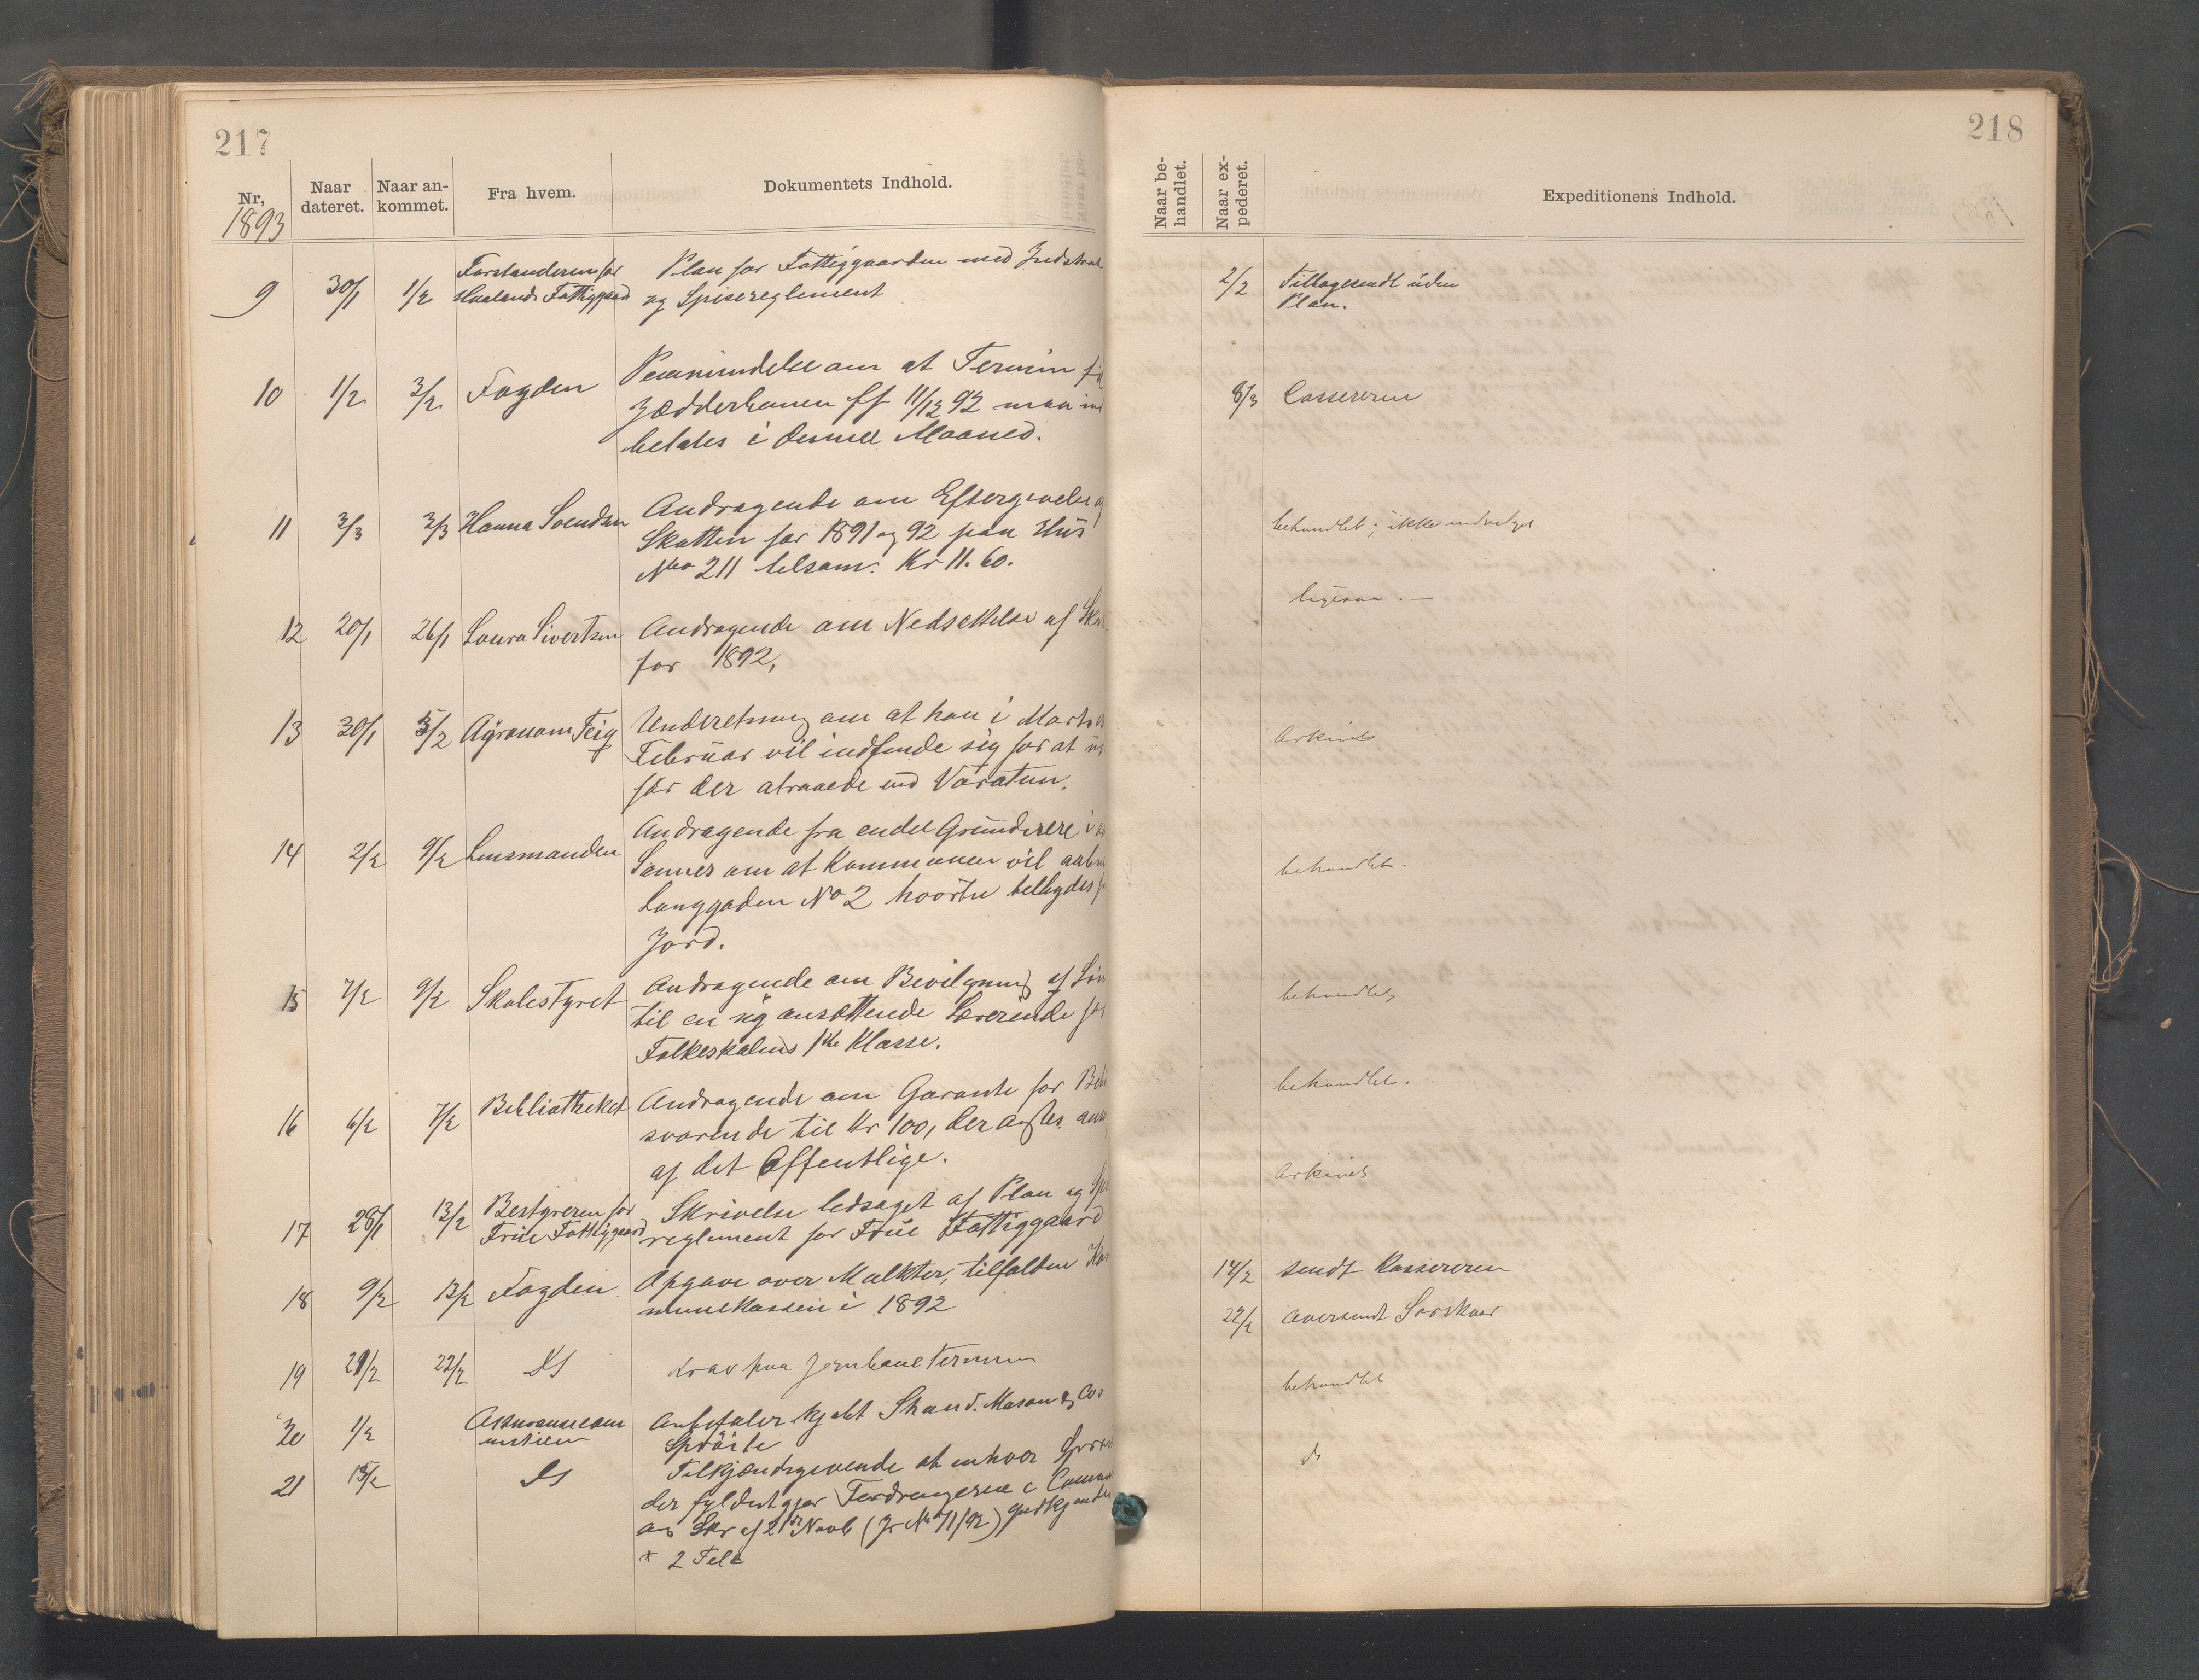 217
Nr,
Naar dateret.
Naar ankommet.
Fra hvem.
Dokumentets Indhold.
1893
9 30/1 1/2 Forstanderen for Hualands Fattiggaard
Plan for Fattiggaarden med
og Spisereglement
10 1/2 3/2 Fogden
Paamindelse om at Termin
Jædderbanen ff 11/12 92 maa
betales i denne Maaned.
11 3/3 3/3 Hanna Svendsen
Andragende om Eftergivelse
Skatten for 1891 og 92 paa Hus
No 211 tilsam. Kr 11.60.
12 20/1 26/1 Laura Sivertsen
Andragende om Nedsættelse af
for 1892,
13 30/1 3/2 Agronom Feig
Underetning om at han i Marts
Februar vil indfinde sig for at
for der attraaede end Varatun.
14 2/2 9/2 Lensmanden
Andragende fra endel Grundeiere i
Sannes om at Kommunen vil
Langgaden No 2 hvortil tilbydes
Jord.
15 7/2 9/2 Skolestyret
Andragende om Bevilgning af
til en ny ansættende Lærerinde for
Folkeskolens 1ste Klasse.
16 6/2 7/2 Bibliotheket
Andragende om Garanti for
svarende til Kr 100, der
af det Offentlige.
17 28/1 13/2 Bestyreren for Frue Fattiggaard
Skrivelse ledsaget af Plan og
reglement for Frue Fattiggaard
18 9/2 13/2 Fogden
Opgave over Mulkter, tilfalden
munekassen i 1892
19 21/2 22/2 Ds
Krav paa Jernbane Termin
20 1/2
Anbefaler kjøbt Skand. Mason &
Sprøite
21 15/2 Ds
Tilkjendegivende at enhver
der fyldestgjør Fordringerne i
Skr af 21de Novb (Jr No 71/92) godkjendes
218
Naar behandlet.
Naar expederet.
Expeditionens Indhold.
2/2 Tilbagesendt uden
Plan.
8/3 Cassereren
behandlet; ikke
ligesaa. —
Arkivet
behandlet.
behandlet,
behandlet.
Arkivet
14/2 sendt Kassereren
22/2 oversendt
behandlet
ds